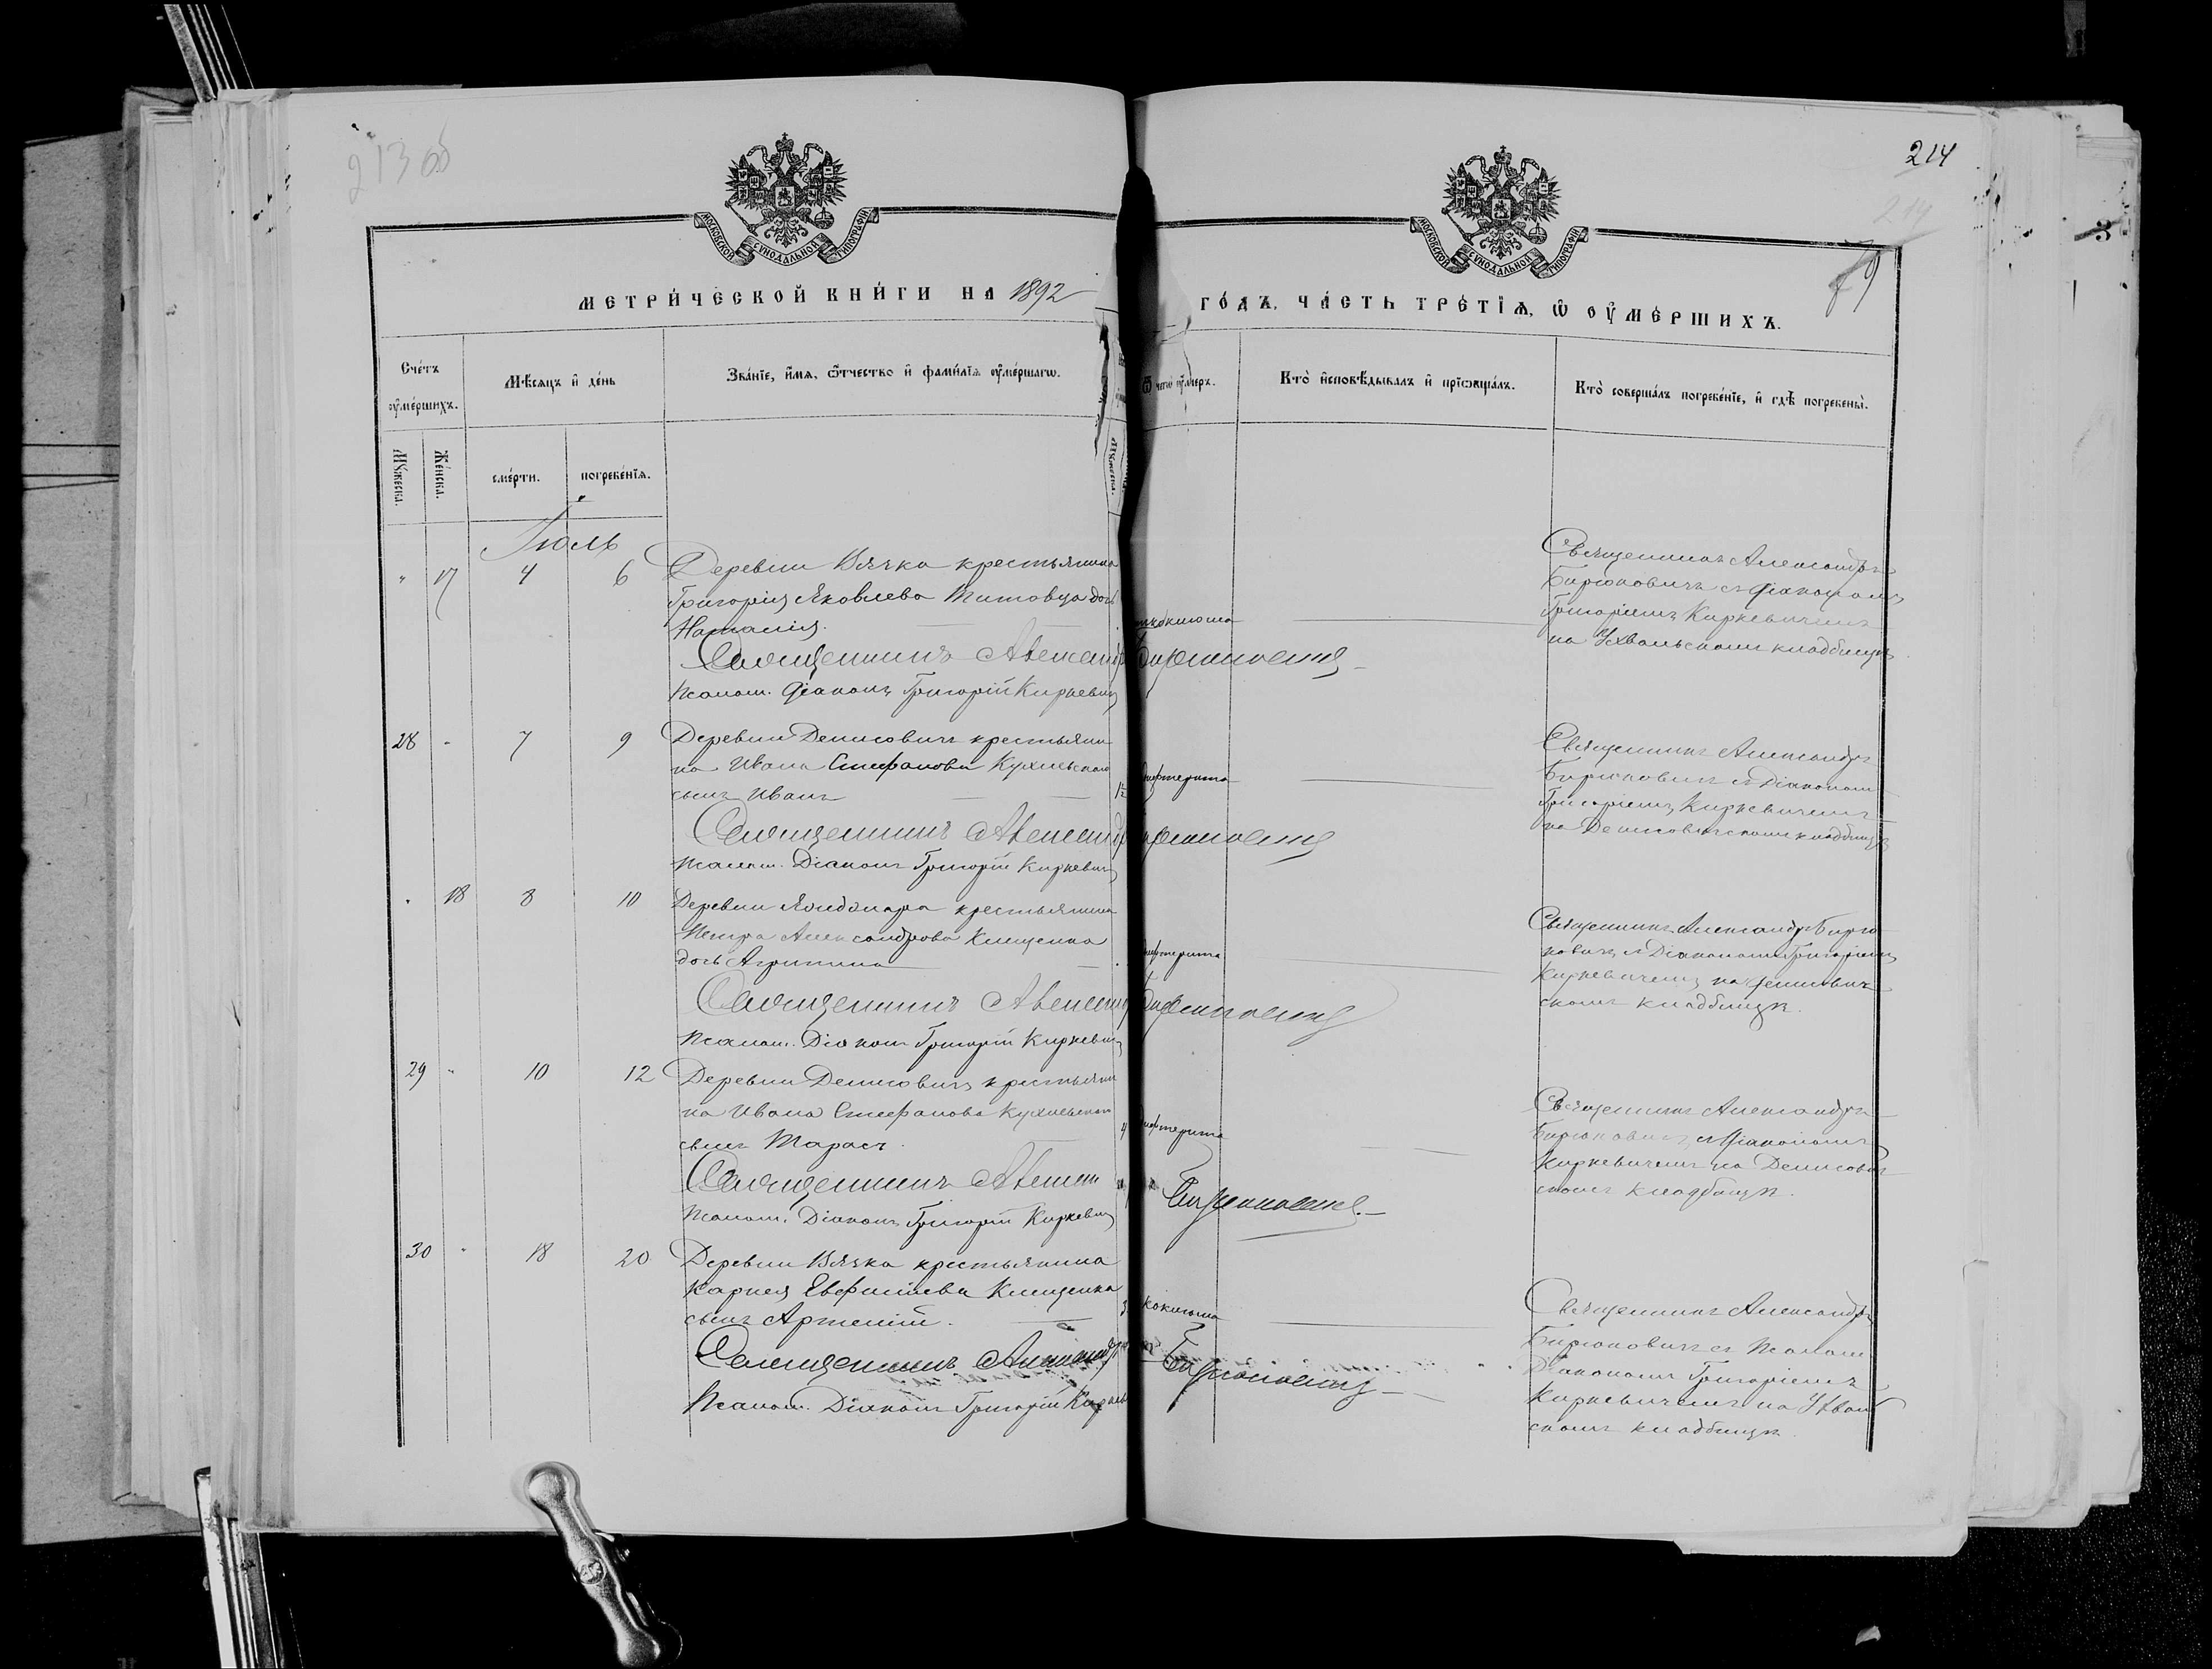 213 об
214
214
79
МОСКОВСКОЙ СѴНОДАЛЬНОЙ ТИПОГРАФІИ
МОСКОВСКОЙ СѴНОДАЛЬНОЙ ТИПОГРАФІИ
МЕТРИ́ЧЕСКОЙ КНИ́ГИ НА 1892
ГО́ДЪ, ЧА́СТЬ ТРЕ́ТІѦ, Ѿ ОУ҆МЕ́РШИХЪ.
Сче́тъ оу҆ме́ршихъ.
Мѣ́сяцъ и҆ де́нь
Зва́нїе, и҆́мя, ѻ҆́тчество и҆ фами́лїя оу҆ме́ршагѡ.
Ѿ чегѡ̀ оу҆́меръ.
Кто̀ и҆сповѣ́дывалъ и҆ прїѡбща́лъ.
Кто̀ соверша́лъ погребе́нїе, и҆ гдѣ̀ погребены̀.
Мꙋ́жеска.
Же́нска.
сме́рти.
погребе́нїя.
Мꙋ́жеска.
Іюль
" 17 4 6 Деревни Вячка крестьянина
Григорія Яковлева Титовца дочь
Наталія.
Священникъ Александръ Бирюковичъ
Псалом. Діаконъ Григорій Киркевичъ
Священникъ Александръ
Бирюковичъ съ Діакономъ
Григоріемъ Киркевичемъ
на Ухвальскомъ кладбищѣ.
28 - 7 9 Деревни Денисовичъ крестьяни-
на Ивана Стефанова
сынъ Иванъ
дифтерита
Священникъ Александръ Бирюковичъ
Псалом. Діаконъ Григорій Киркевичъ
Священникъ Александръ
Бирюковичъ съ Діакономъ
Григоріемъ Киркевичемъ
на Денисовичскомъ кладбищѣ
" 18 8 10 Деревни крестьянина
Петра Александрова Клещенка
дочь Агрипина
дифтерита
Священникъ Александръ Бирюковичъ
Псалом. Діаконъ Григорій Киркевичъ
Священникъ Александръ Бирю-
ковичъ съ Діакономъ Григоріемъ
Киркевичемъ на Денисович-
скомъ кладбищѣ.
29 " 10 12 Деревни Денисовичъ крестьяни-
на Ивана Стефанова
сынъ Тарасъ.
4 дифтерита
Священникъ Александръ Бирюковичъ.
Псалом. Діаконъ Григорій Киркевичъ
Священникъ Александръ
Бирюковичъ съ Діакономъ
Киркевичемъ на Денисович-
скомъ кладбищѣ.
30 " 18 20 Деревни Вячка крестьянина
Карнея Евфиміева Клещенка
сынъ Артемій.
3 коклюша
Священникъ Александръ Бирюковичъ
Псалом. Діаконъ Григорій Киркевичъ
Священникъ Александръ
Бирюковичъ съ Псалом.
Діакономъ Григоріемъ
Киркевичемъ на Ухваль-
скомъ кладбищѣ.